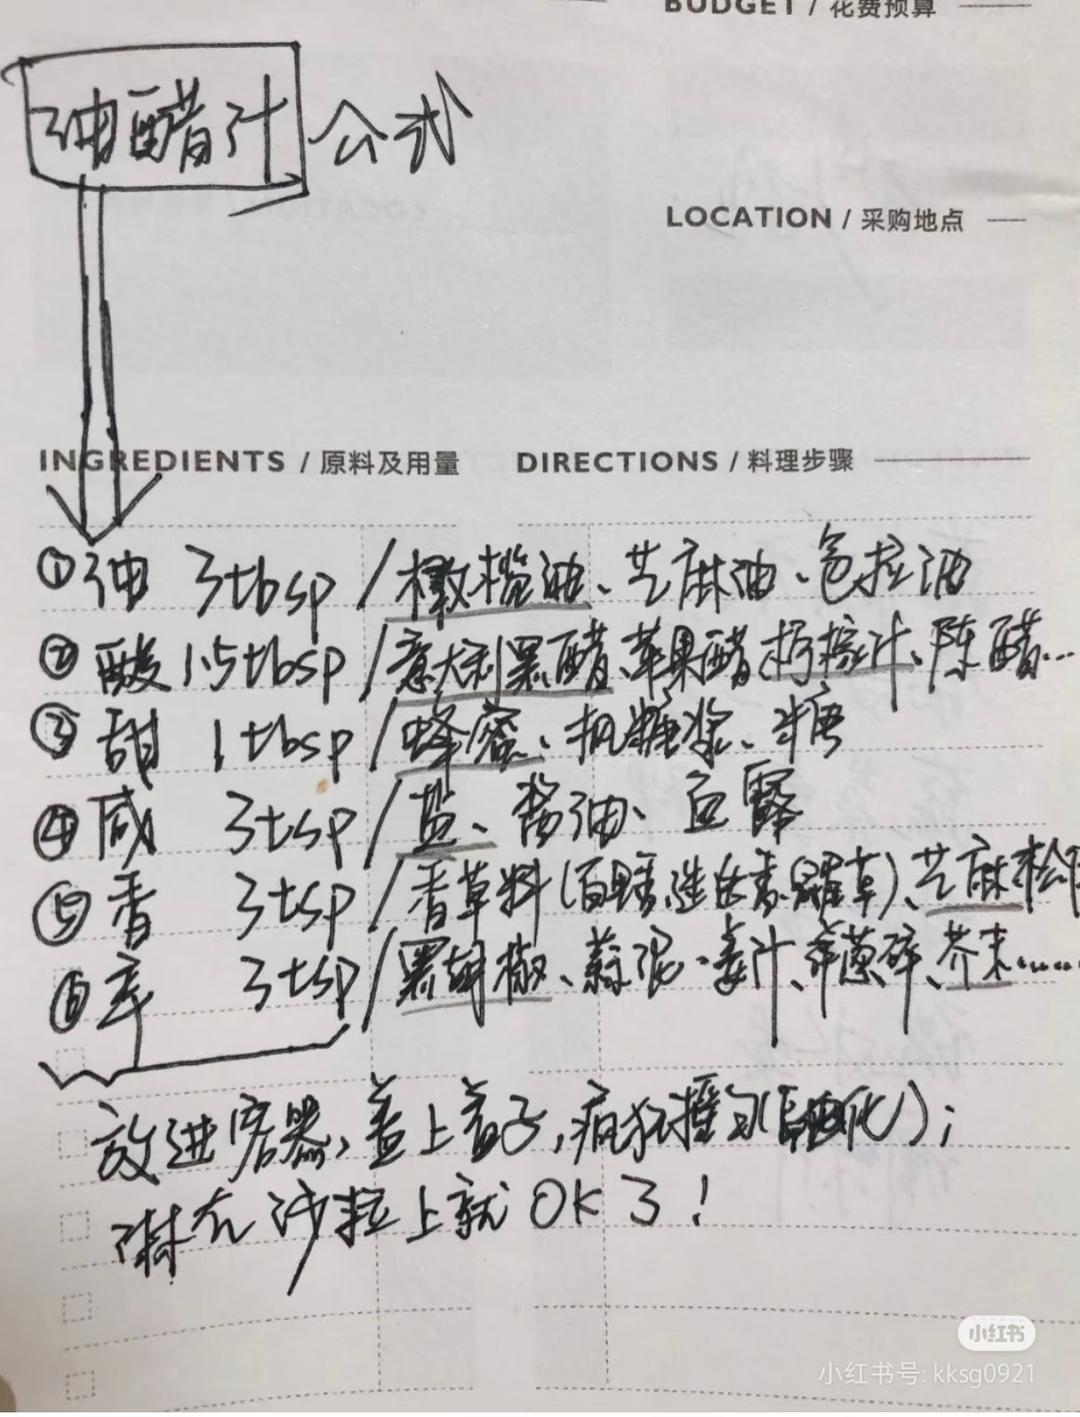 BUDGET / 花费预算
油醋汁 公式
LOCATION / 采购地点
INGREDIENTS / 原料及用量
DIRECTIONS / 料理步骤
①油 3tbsp / 橄榄油、芝麻油、色拉油
②酸 1.5tbsp / 意大利黑醋、苹果醋、柠檬汁、陈醋...
③甜 1tbsp / 蜂蜜、枫糖浆、糖
④咸 3tsp / 盐、酱油、豆豉
⑤香 3tsp / 香草料(百里香、迷迭香、罗勒草)、芝麻
⑥辛 3tsp / 黑胡椒、蒜泥、姜汁、洋葱碎、芥末......
放进容器,盖上盖子,疯狂摇匀(乳化);
淋在沙拉上就OK了!
小红书
小红书号: kksg0921